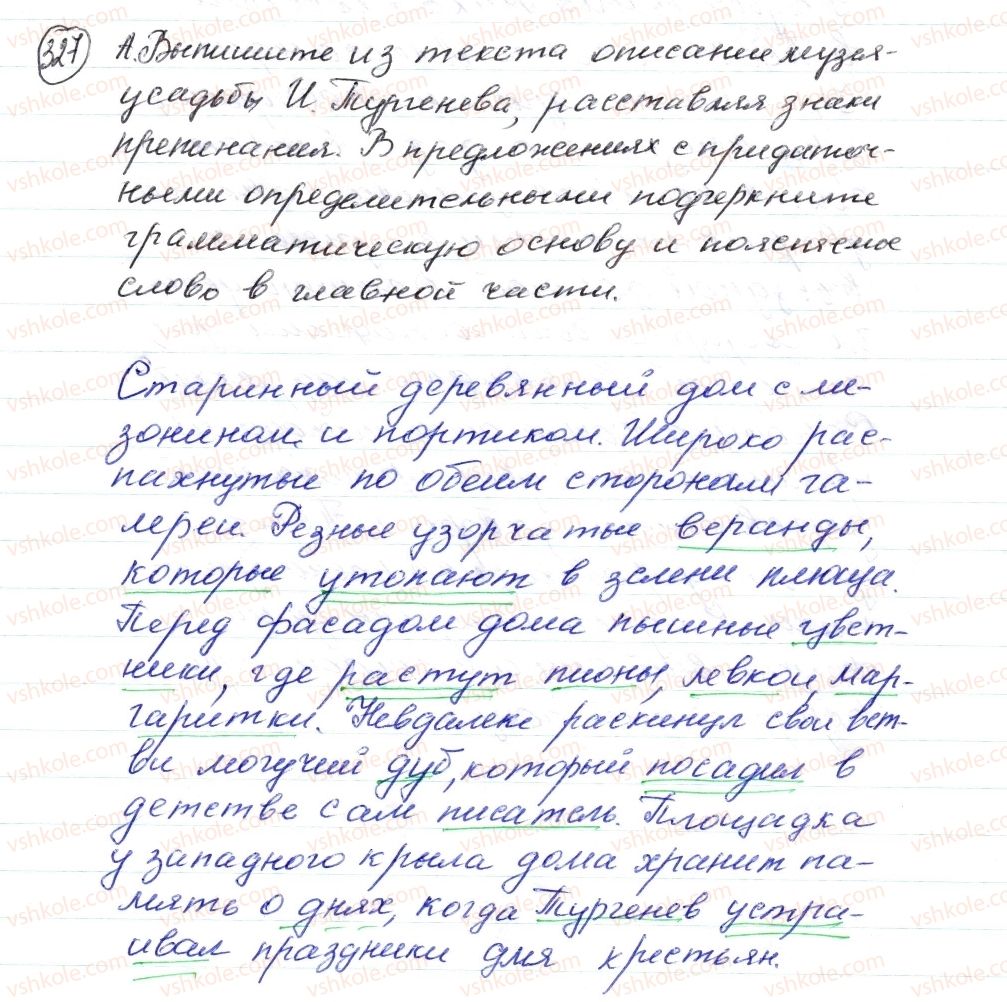 327 А. Выпишите из текста описание музея-
усадьбы И. Тургенева, расставляя знаки
препинания. В предложениях с придаточ-
ными определительными подчеркните
грамматическую основу и поясняемое
слово в главной части.
Старинный деревянный дом с ме-
зонином и портиком. Широко рас-
пахнутые по обеим сторонам га-
лереи. Резные узорчатые веранды,
которые утопают в зелени плюща.
Перед фасадом дома пышные цвет-
ники, где растут пионы, левкои, мар-
гаритки. Невдалеке раскинул свои вет-
ви могучий дуб, который посадил в
детстве сам писатель. Площадка
у западного крыла дома хранит па-
мять о днях, когда Тургенев устра-
ивал праздники для крестьян.